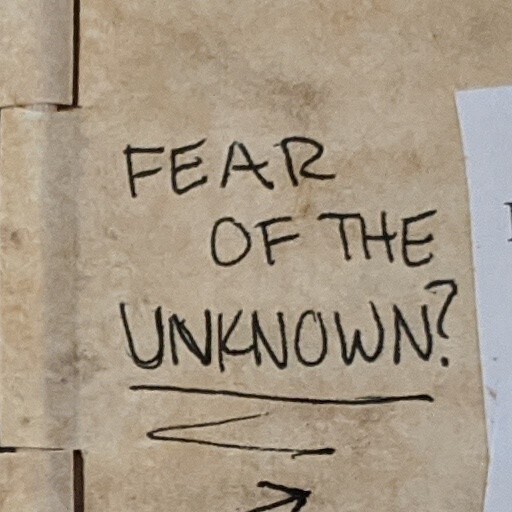 FEAR
OF THE
UNKNOWN?